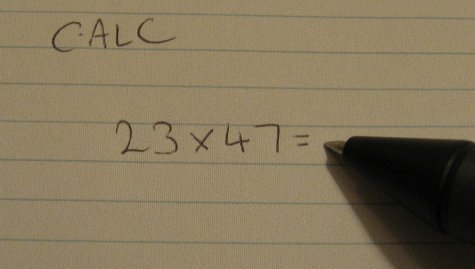 CALC
23×47=